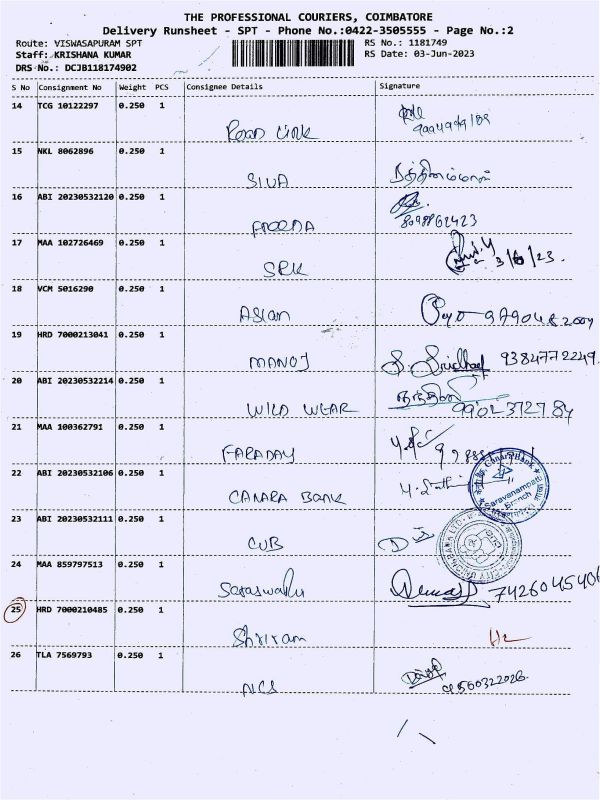 THE PROFESSIONAL COURIERS, COIMBATORE
Delivery Runsheet - SPT - Phone No.:0422-3505555 - Page No.:2
Route: VISWASAPURAM SPT
RS No.: 1181749
Staff: KRISHANA KUMAR
RS Date: 03-Jun-2023
DRS No.: DCJB118174902
S No Consignment No Weight PCS Consignee Details Signature
14 TCG 10122297 0.250 1
Road Link
15 NKL 8062896 0.250 1
SIVA
16 ABI 20230532120 0.250 1
8098862423
17 MAA 102726469 0.250 1
SRK 3/6/23.
18 VCM 5016290 0.250 1
Asian
19 HRD 7000213041 0.250 1
MANOJ S. Sridhar 9384772249.
20 ABI 20230532214 0.250 1
WILD WEAR 9902372784
21 MAA 100362791 0.250 1
FARADAY
22 ABI 20230532106 0.250 1
CANARA BANK
Canara Bank
Saravanampatti
Branch
23 ABI 20230532111 0.250 1
CUB
24 MAA 859797513 0.250 1
Saraswathi
25 HRD 7000210485 0.250 1
Shriram
26 TLA 7569793 0.250 1
NCS